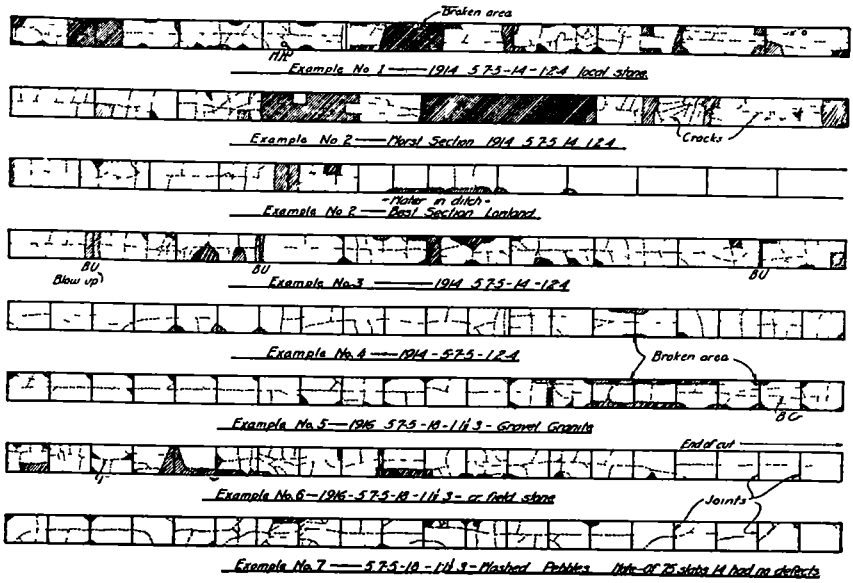 Broken area
Example No 1 — 1914 5 7-5-14-1-2-4 local stone
Example No 2 — Worst Section 1914 5 7-5 14 1 2 4
Cracks
-Water in ditch-
Example No 2 — Best Section Lowland
BU
BU
BU
Blow up
Example No.3 — 1914 5 7-5-14-1-2-4
Example No.4 — 1914-5-7-5-1-2-4
Broken area
Example No.5 — 1916 5 7-5-18-1 1½ 3 - Gravel Granite
End of cut
Example No.6 — 1916-5 7-5-18-1 1½ 3 - cr. field stone
Joints
Example No. 7 — 5 7-5-18-1 1½ 3 - Washed Pebbles Note-Of 75 slabs 14 had no defects